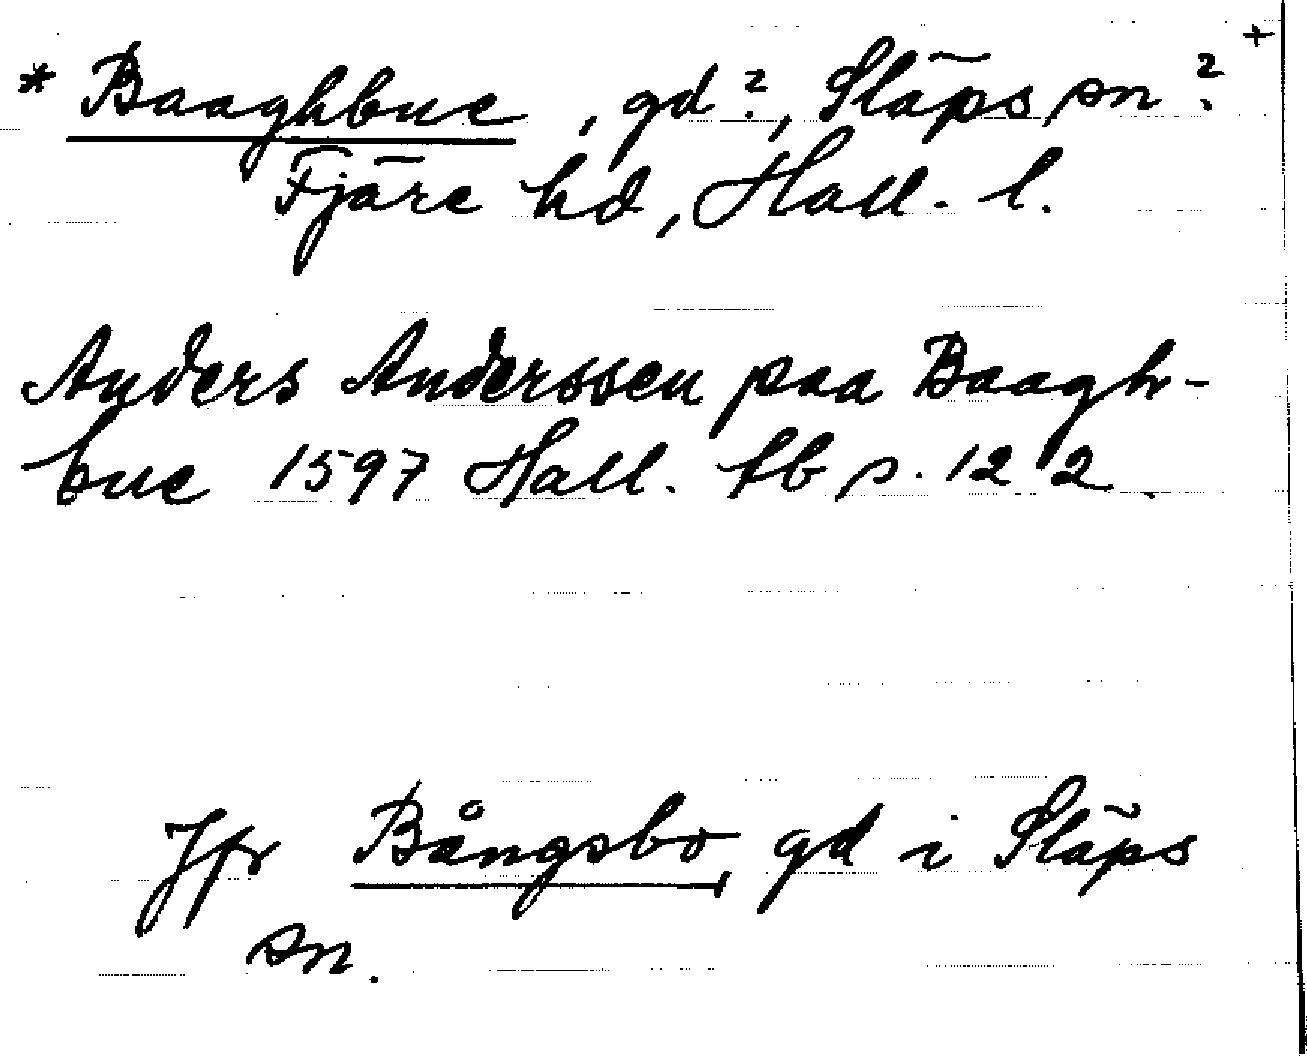 * Baaghbue, gd?, Släps sn? +
Fjäre hd, Hall. l.
Anders Anderssen paa Baagh-
bue 1597 Hall. lb s. 122.
Jfr Bångsbo, gd i Släps
sn.